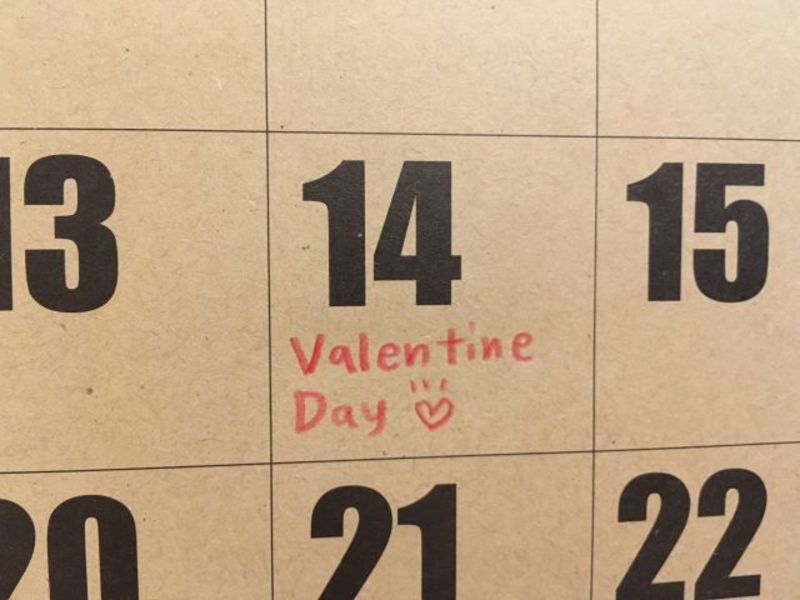 13 14 15
Valentine
Day
20 21 22